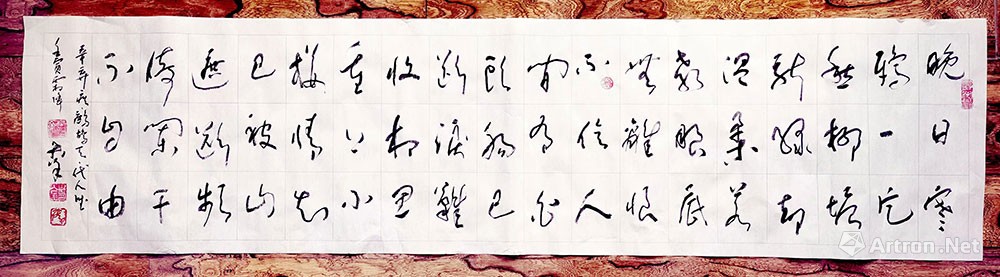 晚日寒
鴉一片
愁柳塘
新绿却
温柔若
教眼底
無離恨
不信人
间有白
头肠已
断淚難
收相思
重上小
楼情知
已被山
遮断频
倚阑干
不自由
辛弃疾鹧鸪天代人赋
壬寅霜降
Artron.Net